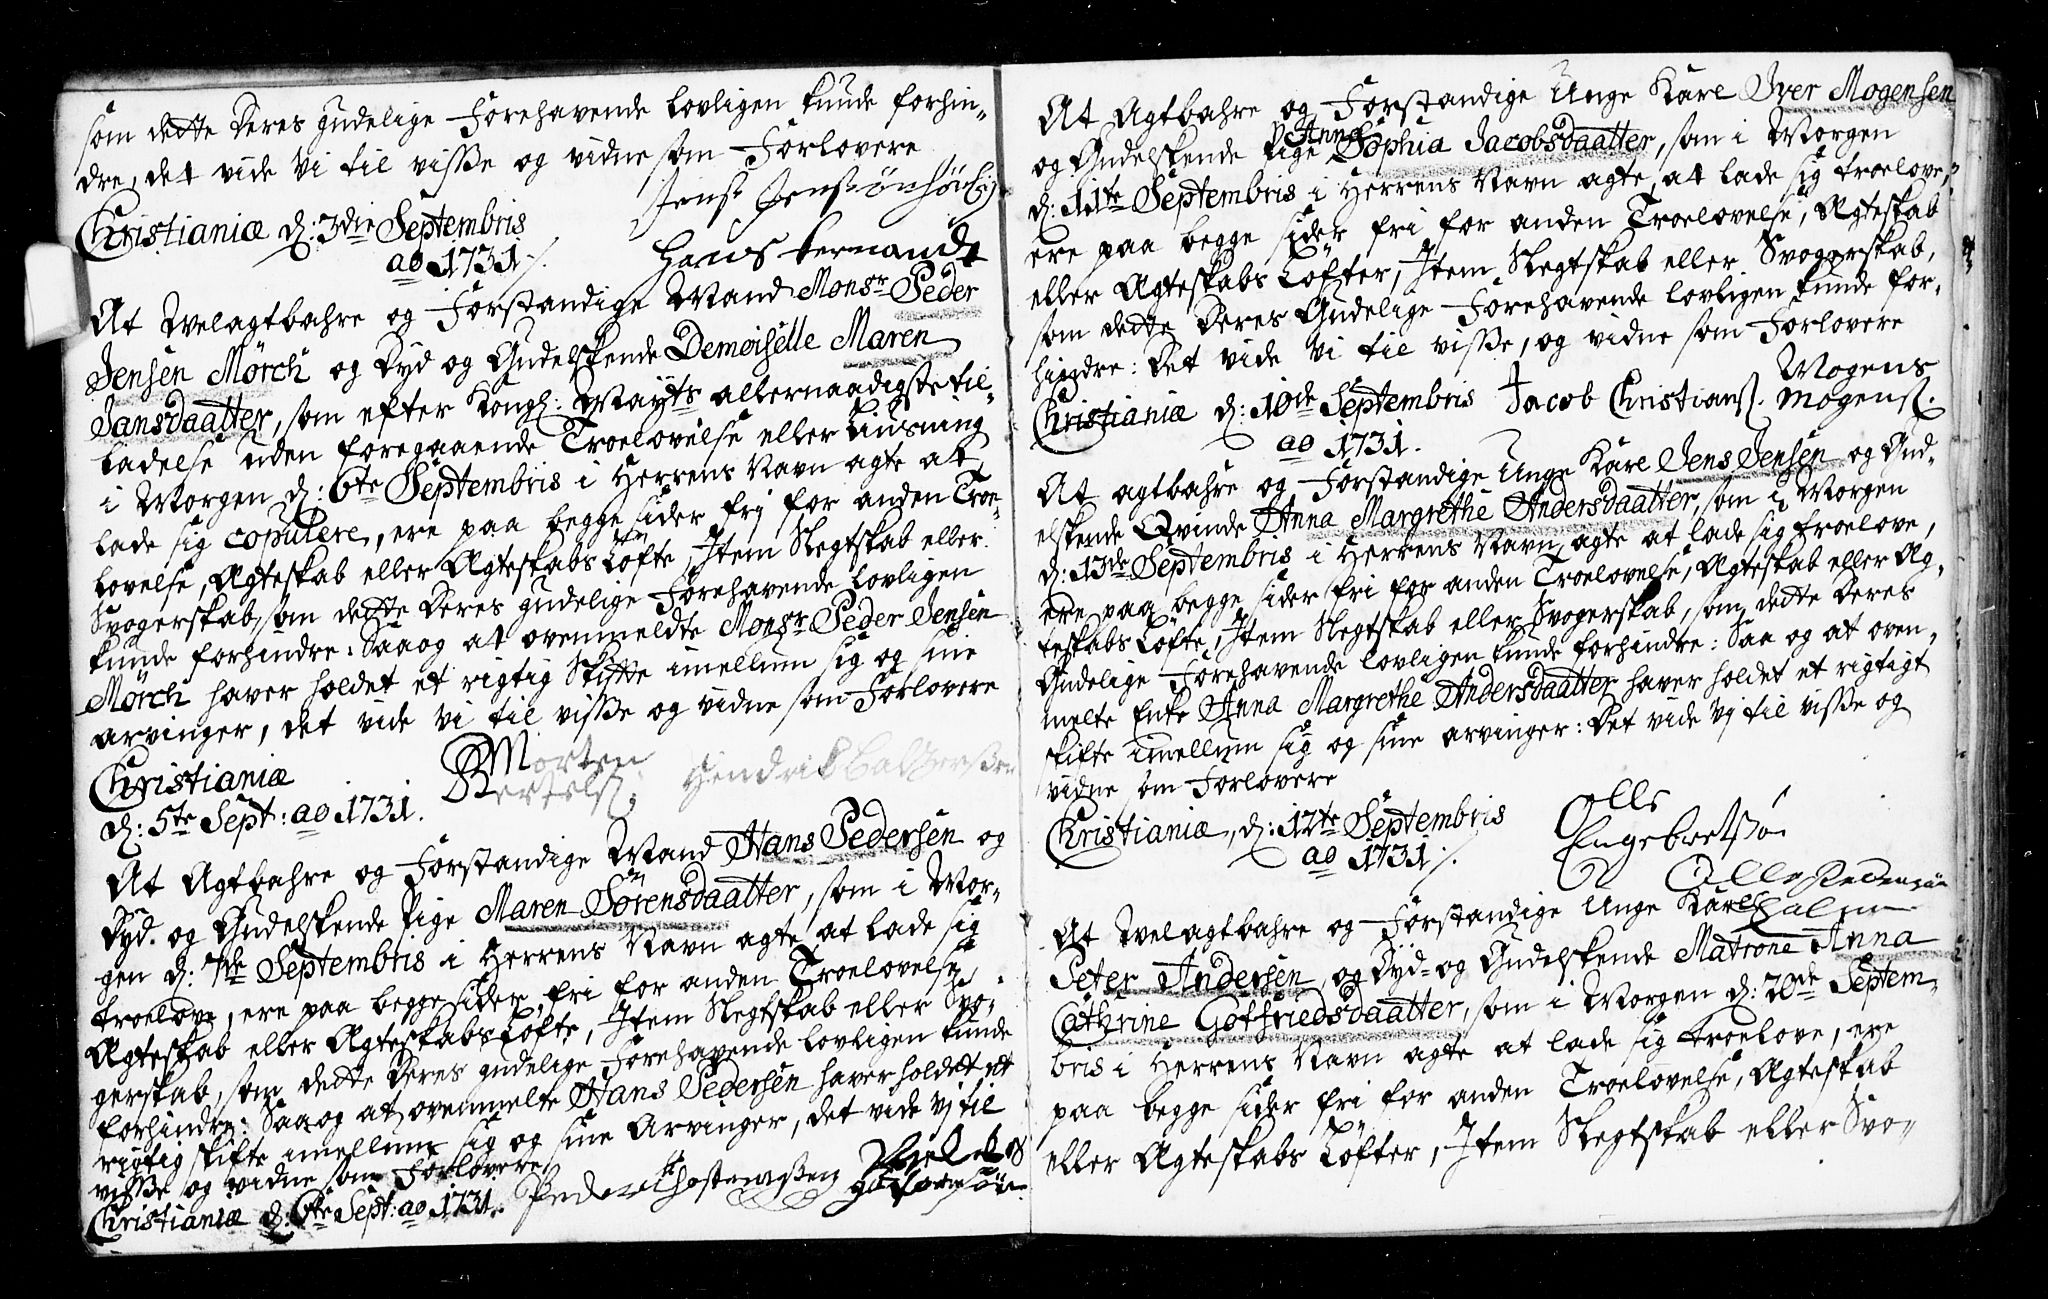 som dette deres gudelige Forehavende lovligen kunde forhin-
dre, det vide vi til visse og vidne som Forlovere
Christianiæ d: 3die Septembris
ao 1731 ./.
Jens Jensøn
Hans
At Welagtbahre og Forstandige Mand Monsr Peder
Jensen Mörch og Dyd og Gudelskende Demoiselle Maren
Jansdaatter, som efter Kongl: Mayts allernaadigste til-
ladelse uden foregaaende Troelovelse eller Liusning
i Morgen d: 6te Septembris i Herrens Navn agte at
lade sig copulere, ere paa begge sider frj for anden Troe-
lovelse, Ægteskab eller Ægteskabs Løfte, Item Slegtskab eller
Svogerskab, som dette deres gudelige Forehavende lovligen
kunde forhindre: Saa og at ovenmeldte Monsr Peder Jensen
Mörch haver holdet et rigtig Skifte imellum sig og sine
arvinger, det vide vi til visse og vidne som Forlovere
Christianiæ
d: 5te Sept: ao 1731.
Morten
Bertels:
Hendrik Baltzersen
At Agtbahre og Forstandige Mand Hans Pedersen og
Dyd. og Gudelskende Pige Maren Sörensdaatter, som i Mor-
gen d: 7de Septembris i Herrens Navn agte at lade sig
troelove, ere paa begge sider fri for anden Troelovelse,
Ægteskab eller Ægteskabs Løfte, Item Slegtskab eller Svo-
gerskab, som dette deres gudelige Forehavende lovligen kunde
forhindre: Saa og at ovenmelte Hans Pedersen haver holdet et
rigtig skifte imellum sig og sine Arvinger, det vide vj til
visse og vidne som Forlovere
Christianiæ d: 6te Sept: ao 1731.
Peder
At Agtbahre og Forstandige Unge Karl Iver Mogensen
Anna
og Gudelskende Pige Sophia Jacobsdaatter, som i Morgen
d: 11te Septembris i Herrens Navn agte, at lade sig troelove,
ere paa begge sider fri for anden Troelovelse, Ægteskab
eller Ægteskabs Løfter, Item Slegtskab eller Svogerskab,
som dette deres Gudelige Forehavende lovligen kunde for-
hindre: det vide vi til visse, og vidne som Forlovere
Christianiæ d: 10de Septembris
ao 1731.
Jacob Christians.
Mogens
Mogens.
At agtbahre og Forstandige Unge Karl Jens Jensen og Gud-
elskende Qvinde Anna Margrethe Andersdaatter, som i Morgen
d: 13de Septembris i Herrens Navn agte at lade sig troelove,
ere paa begge sider fri for anden Troelovelse, Ægteskab eller Æg-
teskabs Løfte, Item Slegtskab eller Svogerskab, som dette deres
Gudelige Forehavende lovligen kunde forhindre: Saa og at oven-
melte Enke Anna Margrethe Andersdaatter haver holdet et rigtigt
skifte imellum sig og sine arvinger: det vide vj til visse og
vidne som Forlovere
Christianiæ, d: 12te Septembris
ao 1731 ./.
Olle
Engebretsøn
Olle Pedersøn
At Welagtbahre og Forstandige Unge Karl
Peter Andersen, og Dyd- og Gudelskende Matrone Anna
Cathrine Gotfriedsdaatter, som i Morgen d: 20de Septem-
bris i Herrens Navn agte at lade sig troelove, ere
paa begge sider fri for anden Troelovelse, Ægteskab
eller Ægteskabs Løfter, Item Slegtskab eller Svo-